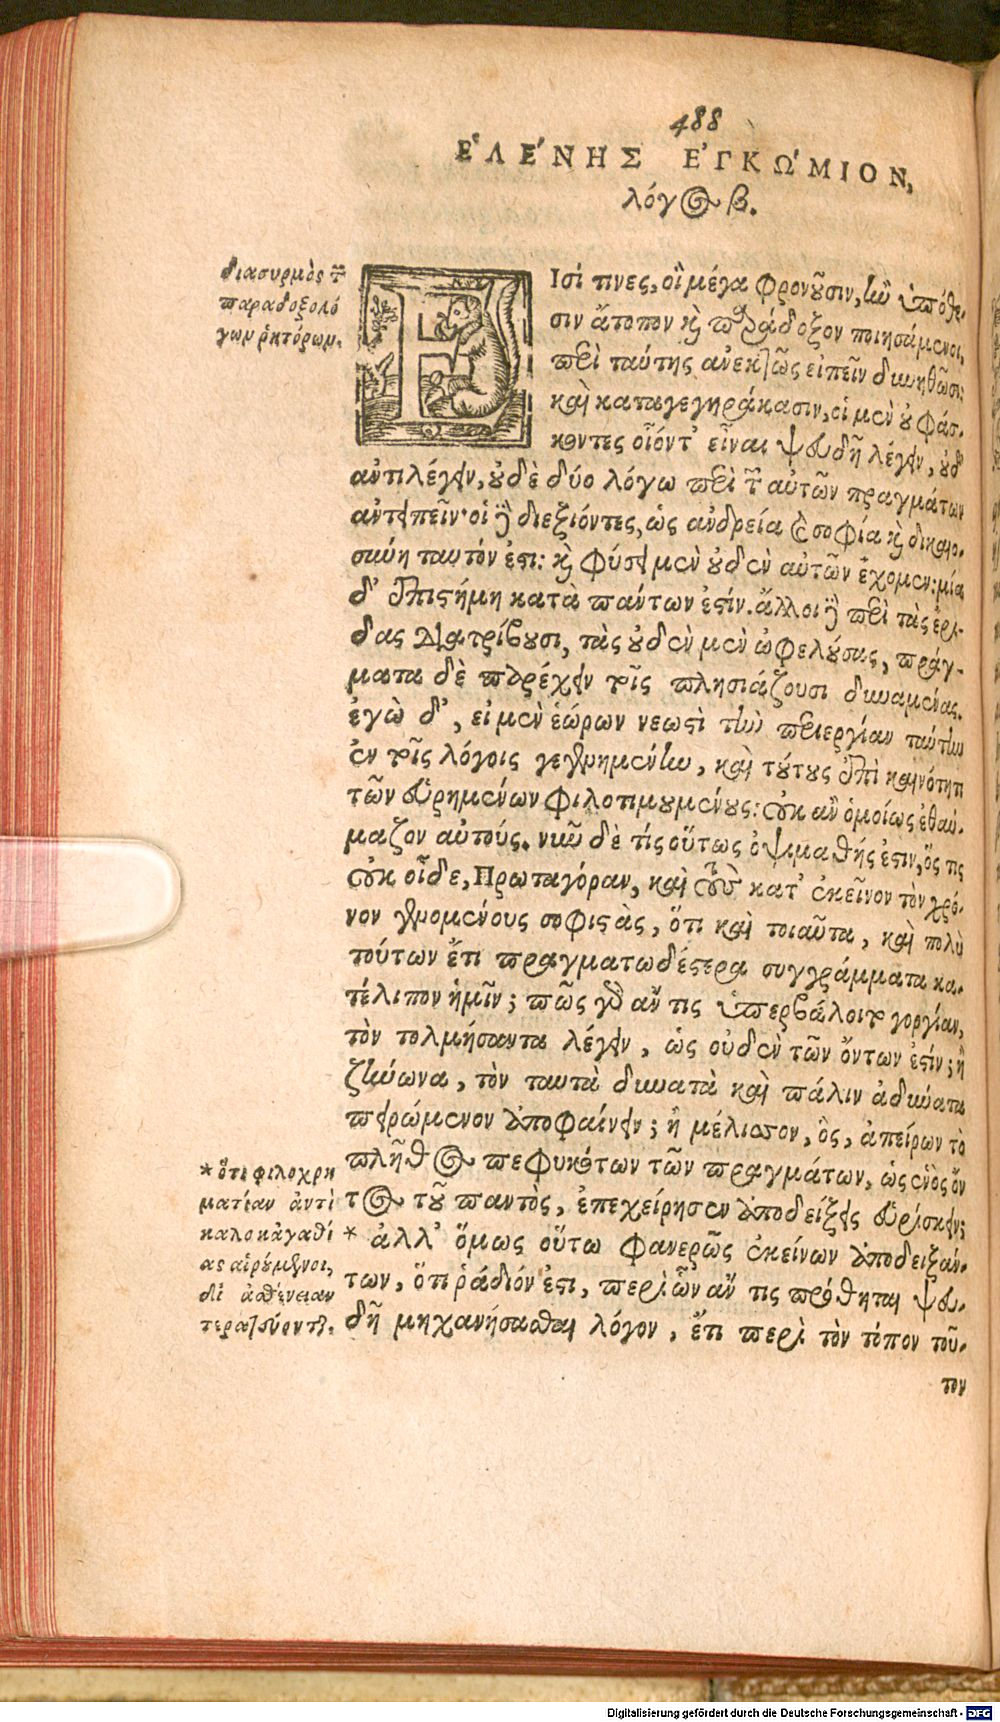 488
ἙΛΈΝΗΣ ἘΓΚΏΜΙΟΝ,
λόγος β.
διασυρμὸς τῶν
παραδοξολό
γων ῥητόρων.
ΕΙσί τινες, οἳ μέγα φρονοῦσιν, ἢν ὑπόθε-
σιν ἄτοπον καὶ παράδοξον ποιησάμενοι,
περὶ ταύτης ἀνεκτῶς εἰπεῖν δυνηθῶσι:
καὶ καταγεγηράκασιν, οἱ μὲν οὐ φάσ-
κοντες οἷόντ' εἶναι ψευδῆ λέγειν, οὐδ'
ἀντιλέγειν, οὐδὲ δύο λόγω περὶ τῶν αὐτῶν πραγμάτων
ἀντειπεῖν· οἱ δὲ διεξιόντες, ὡς ἀνδρεία καὶ σοφία καὶ δικαιο-
σύνη ταυτόν ἐστι: καὶ φύσει μὲν οὐδὲν αὐτῶν ἔχομεν: μία
δ' ἐπιστήμη κατὰ πάντων ἐστίν. ἄλλοι δὲ περὶ τὰς ἔρι-
δας διατρίβουσι, τὰς οὐδὲν μὲν ὠφελούσας, πράγ-
ματα δὲ παρέχειν τοῖς πλησιάζουσι δυναμένας.
ἐγὼ δ', εἰ μὲν ἑώρων νεωστὶ τὴν περιεργίαν ταύτην
ἐν τοῖς λόγοις γεγενημένην, καὶ τούτους ἐπὶ καινότητι
τῶν εὑρημένων φιλοτιμουμένους: οὐκ ἂν ὁμοίως ἐθαύ-
μαζον αὐτούς. νῦν δὲ τίς οὕτως ὀψιμαθής ἐστιν, ὅς τις
οὐκ οἶδε, Πρωταγόραν, καὶ τοὺς κατ' ἐκεῖνον τὸν χρό-
νον γενομένους σοφιστὰς, ὅτι καὶ τοιαῦτα, καὶ πολὺ
τούτων ἔτι πραγματωδέστερα συγγράμματα κα-
τέλιπον ἡμῖν; πῶς γὰρ ἄν τις ὑπερβάλοιτο γοργίαν,
τὸν τολμήσαντα λέγειν, ὡς οὐδὲν τῶν ὄντων ἐστίν; ἢ
ζήνωνα, τὸν ταυτὰ δυνατὰ καὶ πάλιν ἀδύνατα
πειρώμενον ἀποφαίνειν; ἢ μέλισσον, ὃς, ἀπείρων τὸ
πλῆθος πεφυκότων τῶν πραγμάτων, ὡς ἑνὸς ὄν
τος τοῦ παντὸς, ἐπεχείρησεν ἀποδείξεις εὑρίσκειν;
* ἀλλ' ὅμως οὕτω φανερῶς ἐκείνων ἀποδειξάν-
των, ὅτι ῥάδιόν ἐστι, περὶ ὧν ἄν τις πρόθηται ψευ-
δῆ μηχανήσασθαι λόγον, ἔτι περὶ τὸν τόπον τοῦ-
τον
* ὅτι φιλοχρη
ματίαν ἀντὶ
καλοκἀγαθί
ας αἱρούμενοι,
δι' ἀσθένειαν